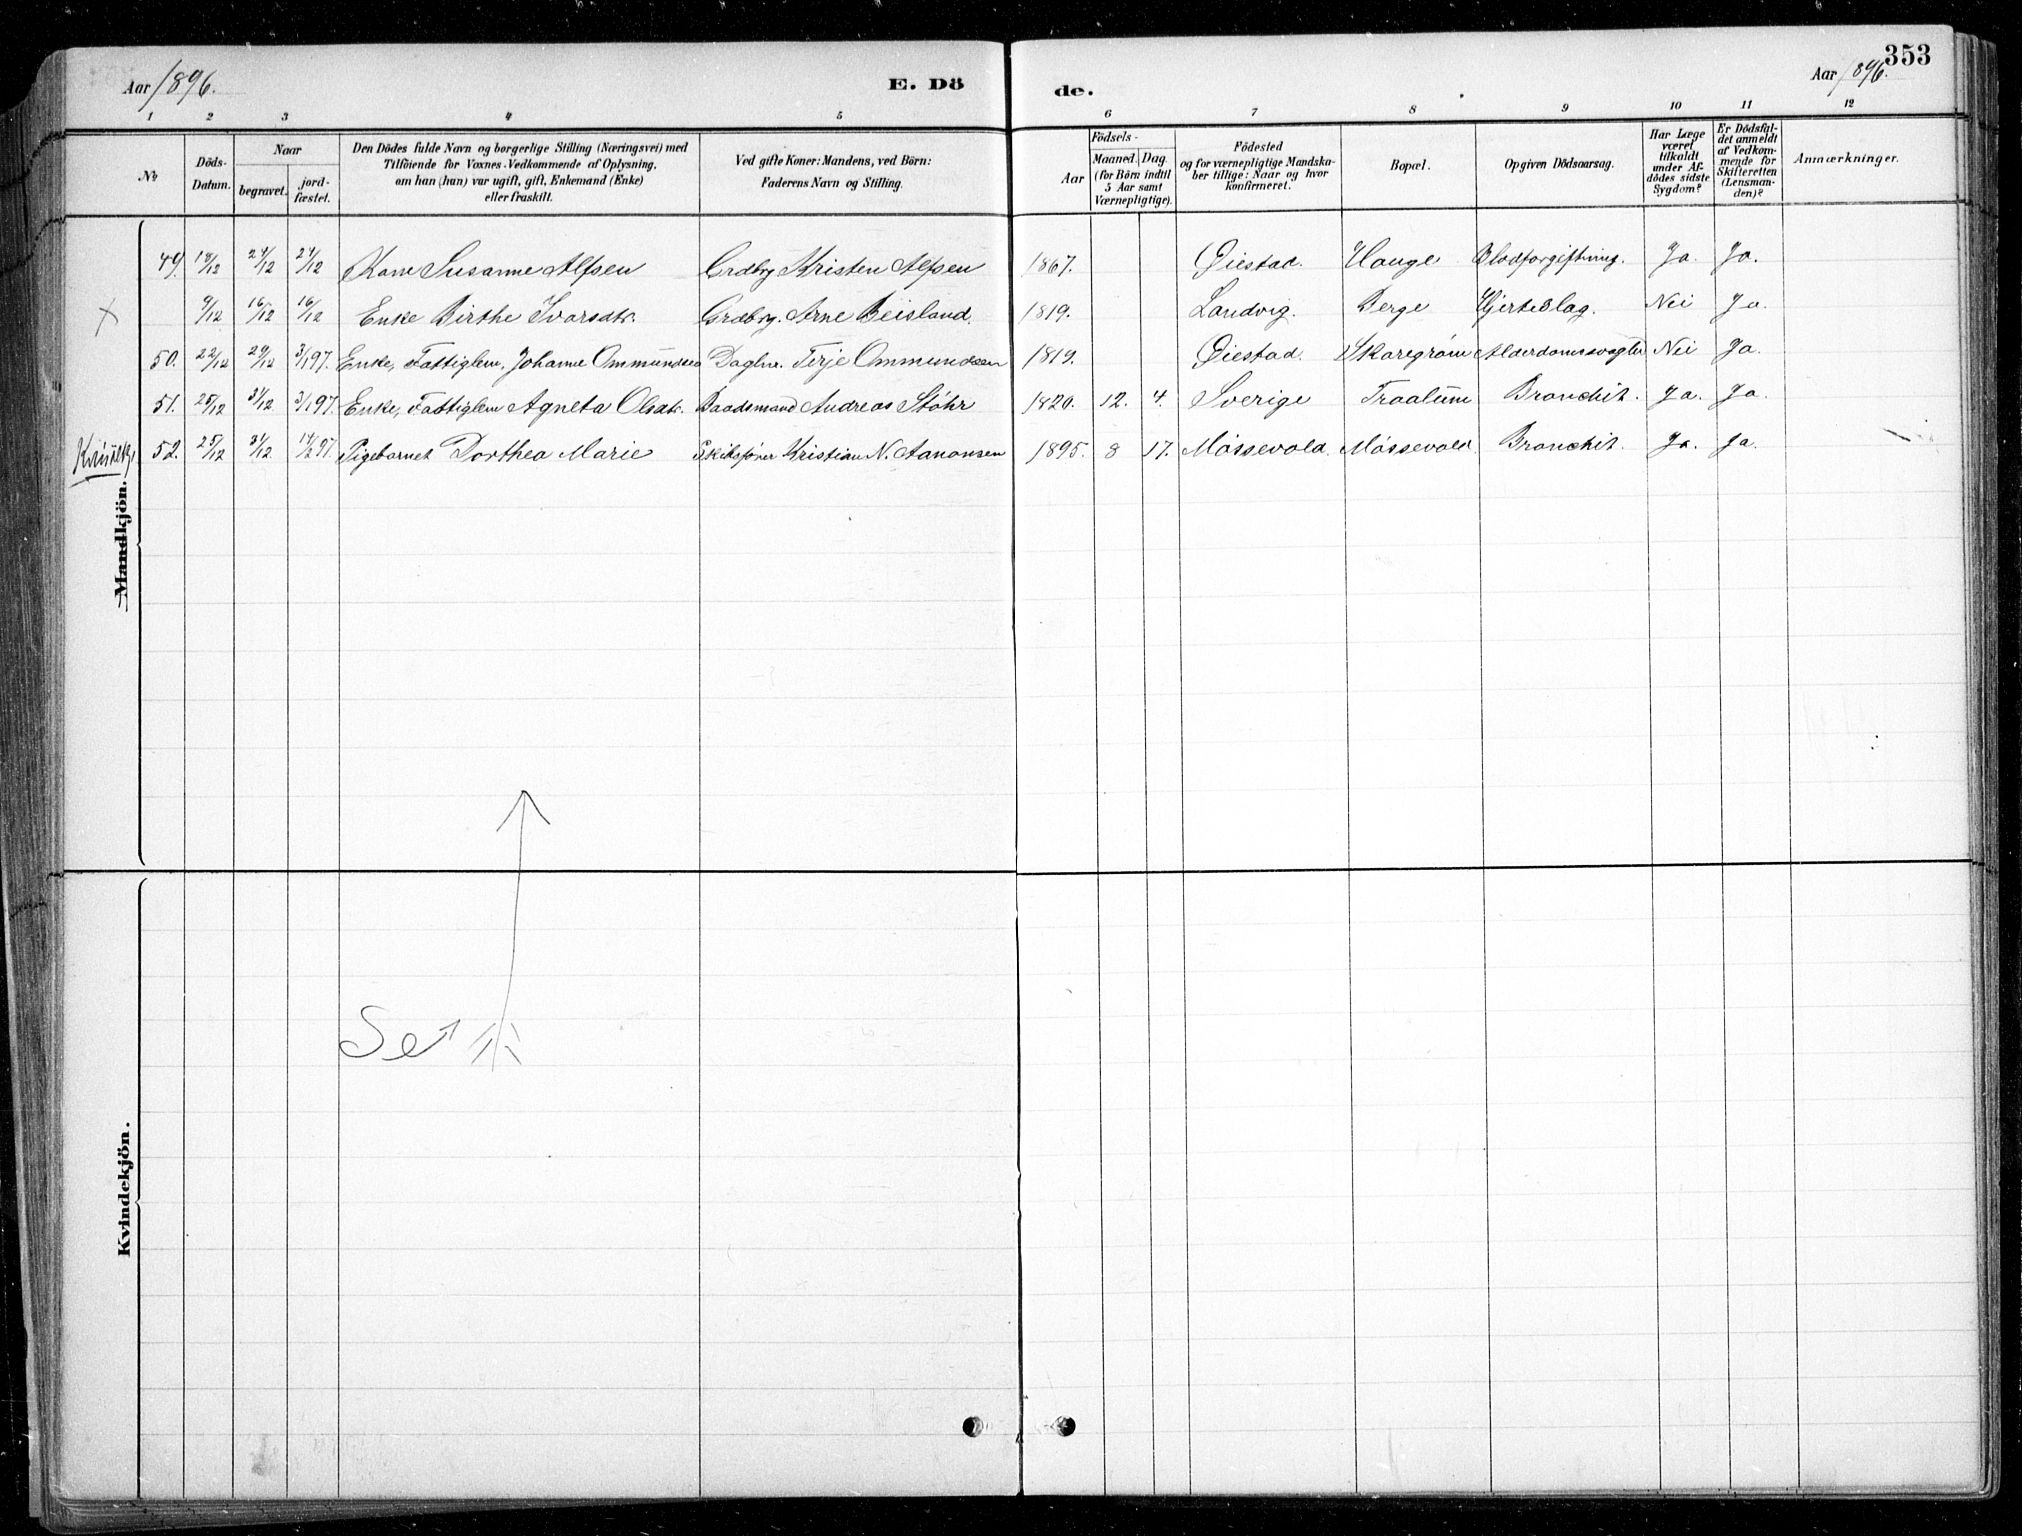 353
Aar 1896.
E. Dö
de.
Aar 1896.
1 2 3 4 5 6 7 8 9 10 11 12
№
Döds-Datum.
Naar
begravet.
jord-fæstet.
Den Dödes fulde Navn og borgerlige Stilling (Næringsvei) med
Tilföiende for Voxnes Vedkommende af Oplysning,
om han (hun) var ugift, gift, Enkemand (Enke)
eller fraskilt.
Ved gifte Koner: Mandens, ved Börn:
Faderens Navn og Stilling.
Födsels-
Aar
Maaned. Dag
(for Börn indtil
5 Aar samt
Værnepligtige).
Födested
og for værnepligtige Mandska-
ber tillige: Naar og hvor
konfirmeret.
Bopæl.
Opgiven Dödsaarsag.
Har Læge
været
tilkaldt
under Af-
dödes sidste
Sygdom?
Er Dödsfal-
det anmeldt
af Vedkom-
mende for
Skifteretten
(Lensman-
den)?
Anmærkninger.
49. 18/12 24/12 24/12 Kone Susanne Alfsen Grdbrg Kristen Alfsen 1867. Øiestad. Hauge Blodforgiftning. Ja. Ja.
9/12 16/12 16/12 Enke Birthe Ivarsdtr. Grdbrg. Arne Beisland. 1819. Landvig. Berge Hjerteslag. Nei Ja.
50. 22/12 29/12 3/1 97. Enke, Fattiglem, Johanne Ommundsen Daglnr. Terje Ommundsen 1819. Øiestad. Skaregrøm Alderdomssvaghed Nei Ja.
51. 25/12 31/12 3/1 97. Enke, Fattiglem Agneta Olsdtr. Baadsmand Andreas Støhr 1820. 12. 4. Sverige Traalum Bronchit. Ja. Ja.
52. 25/12 31/12 14/2 97. Pigebarnet Dorthea Marie Skibsfører Kristian N. Aanonsen 1895. 8 17. Mössevold. Mössevold. Bronchit. Ja. Ja.
Mandkjön.
Se
Kvindekjön.